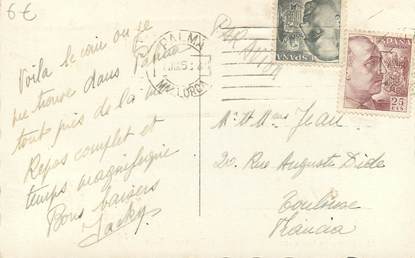 6€
Voilà le coin où je
me trouve dans Palma
tout près de la mer
Repos complet et
temps magnifique
Bons baisers
Jacky
PALMA
MALLORCA
PAR AVION
ESPAÑA
ESPAÑA
25
CTS
Mr et Mme Jean
20 Rue Auguste Dide
Toulouse
Francia